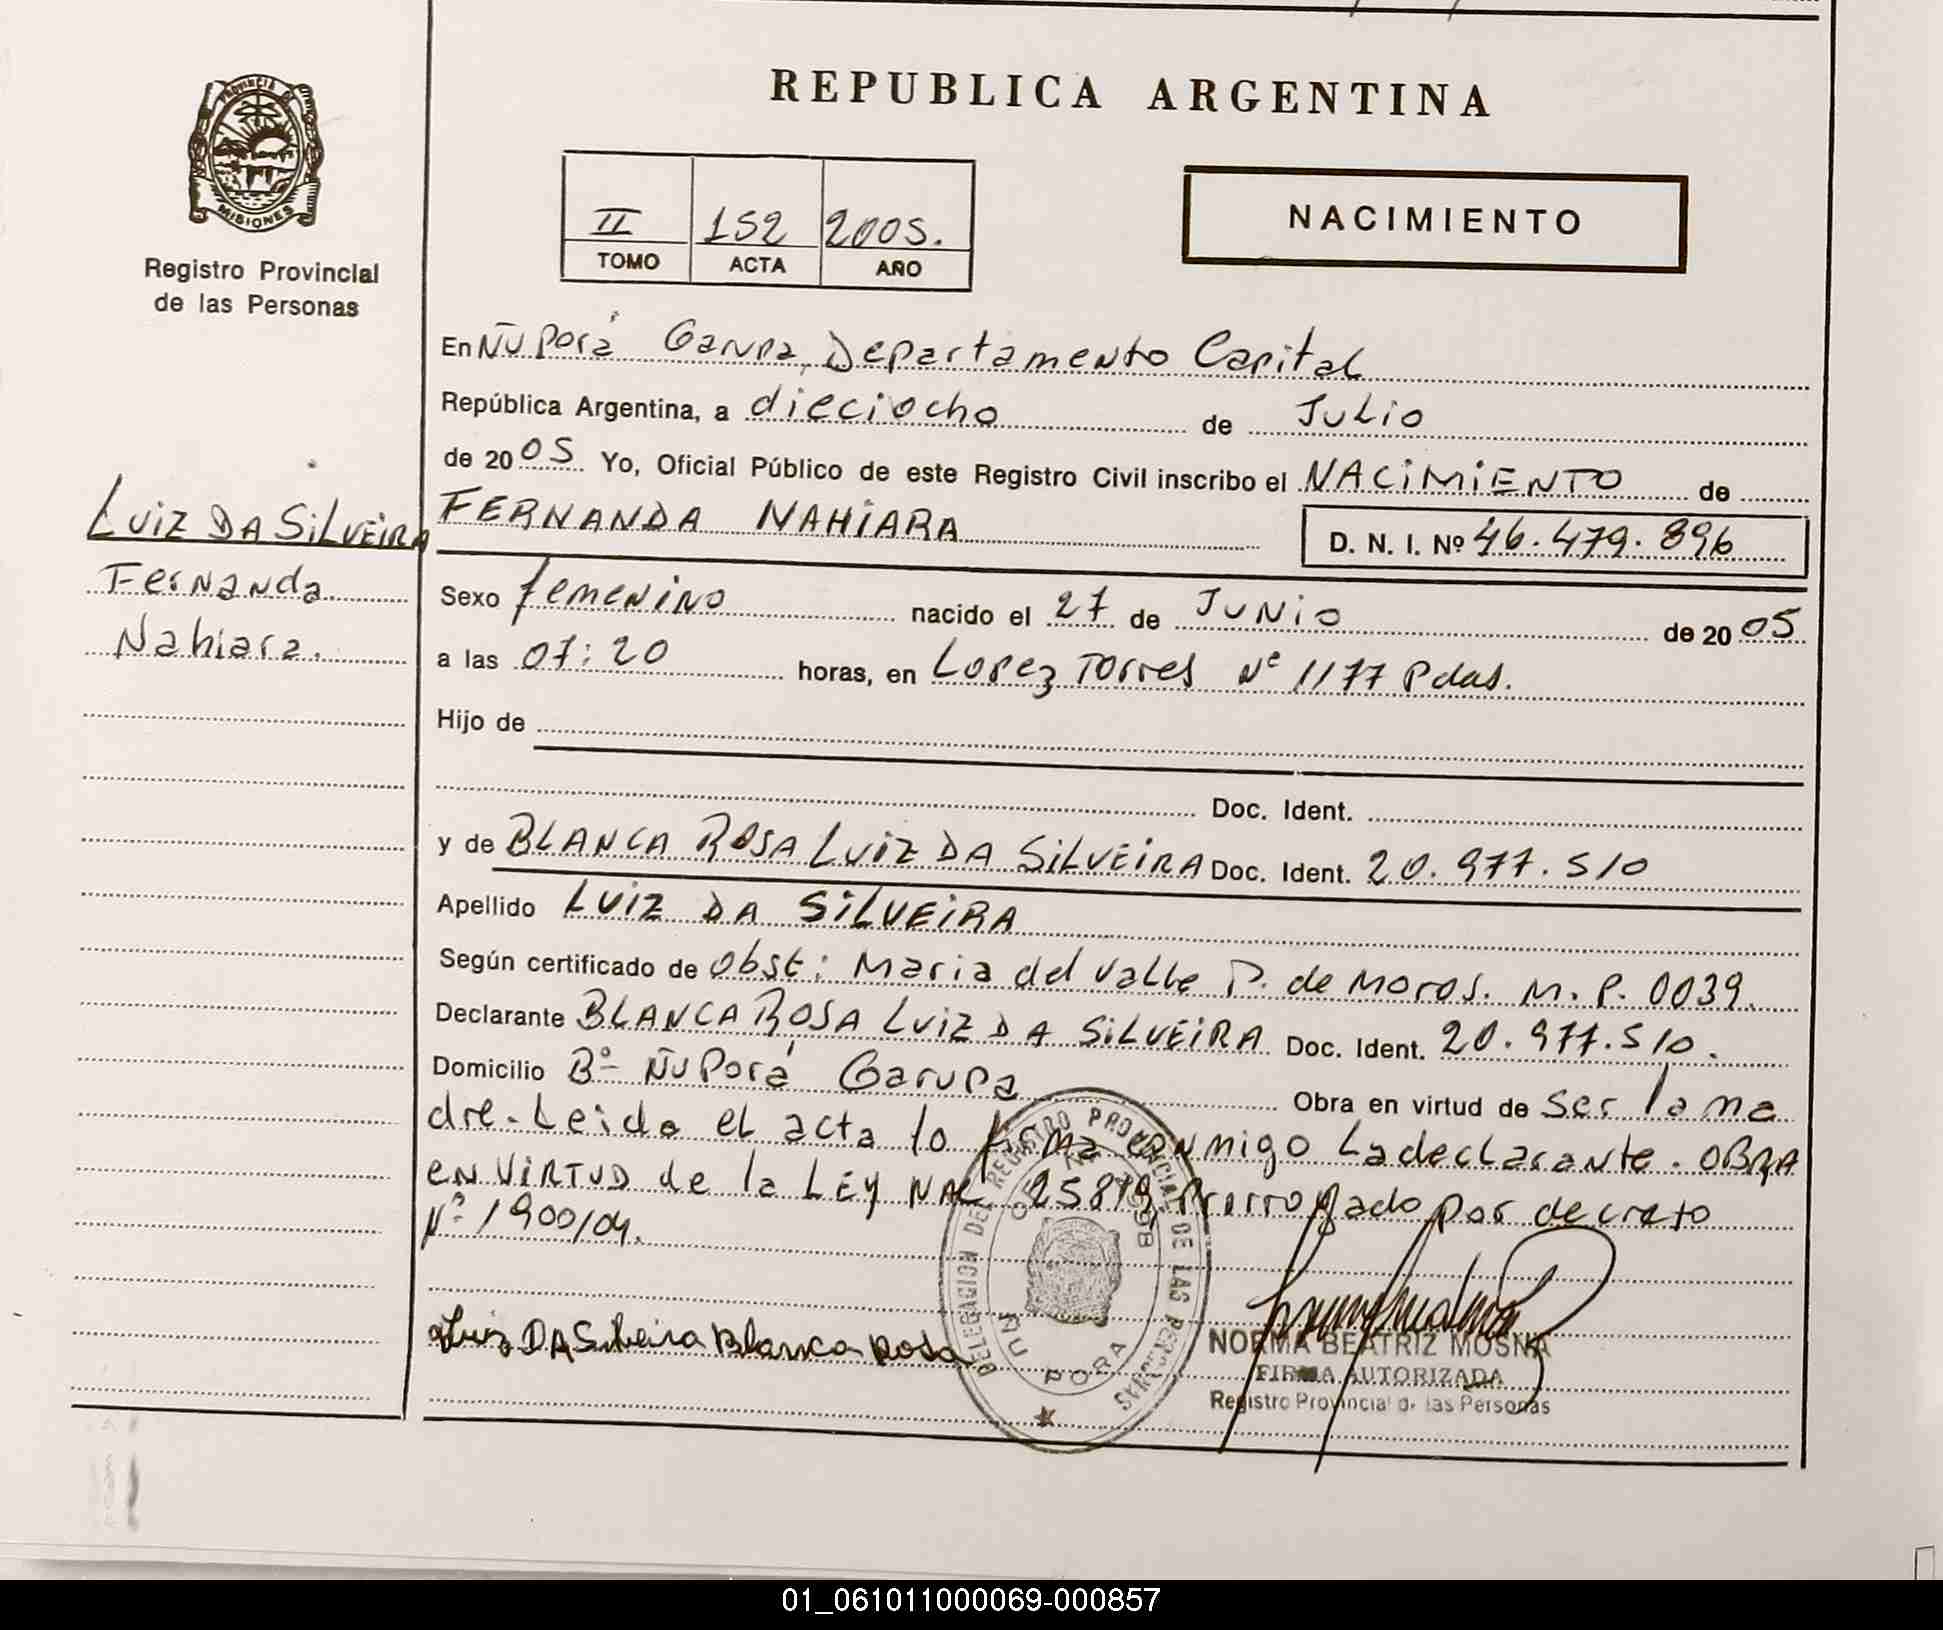 REPUBLICA ARGENTINA
PROVINCIA DE
MISIONES
Registro Provincial
de las Personas
II 152 2005.
TOMO ACTA AÑO
NACIMIENTO
En Ñu Porá Garupa, Departamento Capital
República Argentina, a dieciocho de Julio
de 2005 Yo, Oficial Público de este Registro Civil inscribo el NACIMIENTO de
LUIZ DA SILVEIRA
Fernanda
Nahiara.
FERNANDA NAHIARA D. N. I. Nº 46.479.896
Sexo femenino nacido el 27 de JUNIO de 2005
a las 07:20 horas, en Lopez Torres Nº 1177 Pdas.
Hijo de
Doc. Ident.
y de BLANCA ROSA LUIZ DA SILVEIRA Doc. Ident. 20.977.510
Apellido LUIZ DA SILVEIRA
Según certificado de Obst: Maria del Valle P. de Moros. M.P. 0039.
Declarante BLANCA ROSA LUIZ DA SILVEIRA Doc. Ident. 20.977.510.
Domicilio Bº Ñu Porá Garupa Obra en virtud de ser la ma
dre. Leida el acta lo firma conmigo La declarante. OBRA
EN VIRTUD de la LEY NAC 25819 Prorrogado por decreto
Nº 1900/04.
Luiz DA Silveira Blanca Rosa
DELEGACION DEL REGISTRO PROVINCIAL DE LAS PERSONAS
ÑU PORA
NORMA BEATRIZ MOSNA
FIRMA AUTORIZADA
Registro Provincial de las Personas
01_061011000069-000857